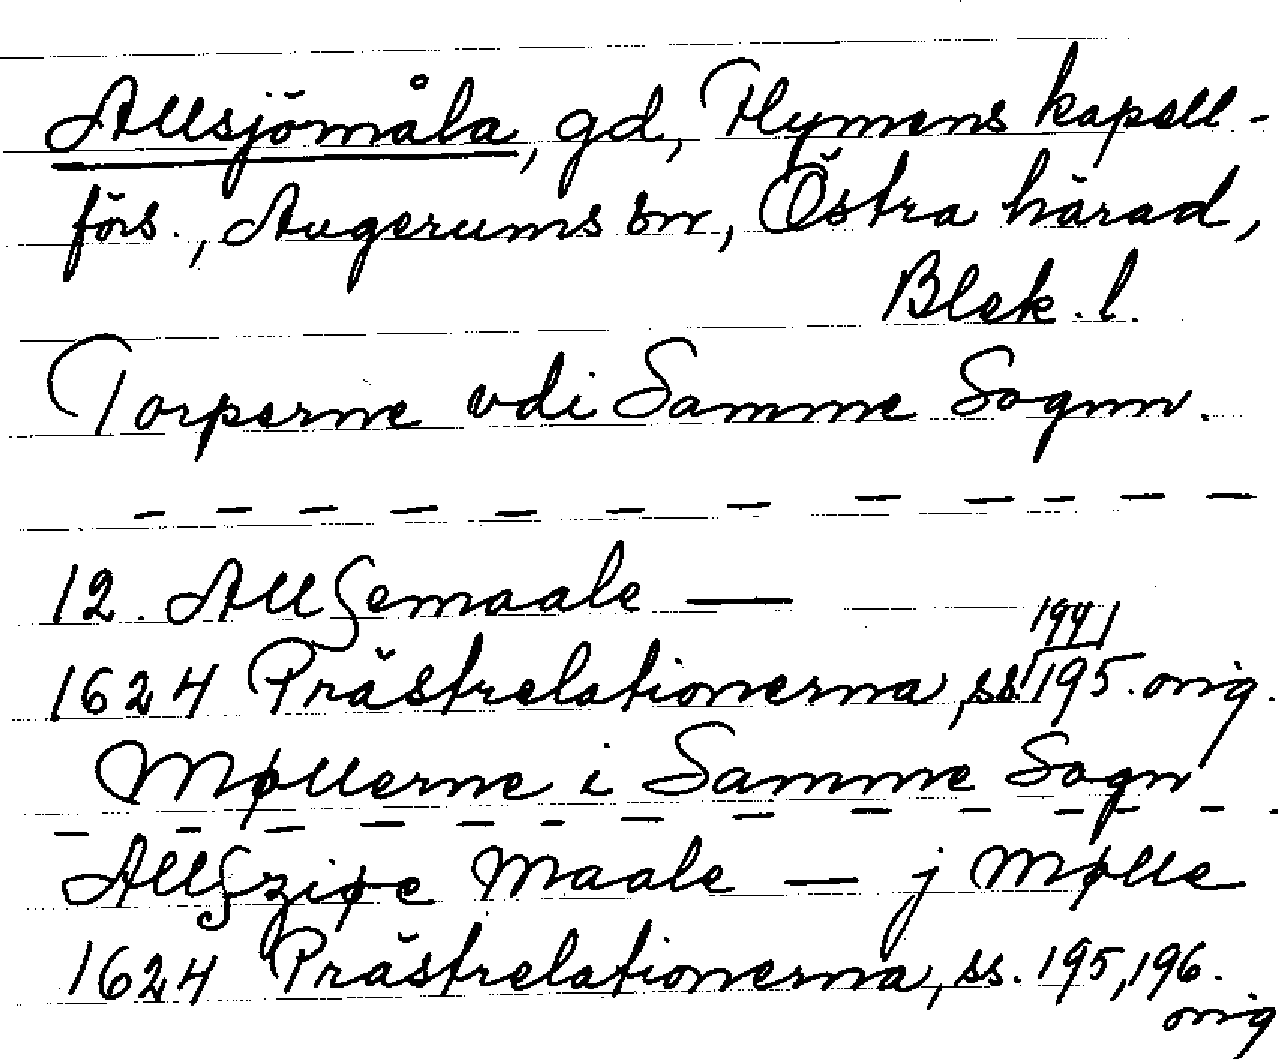 Allsjömåla, gd, Flymens kapell-
förs., Augerums sn, Östra härad,
Blek. l.
Torperne vdi Samme Sognn.
12. Allſemaale —
1624 Prästrelationerna, ss. 195. orig.
Møllerne i Samme Sogn
Allſziøe Maale — j Mølle
1624 Prästrelationerna, ss. 195, 196.
orig